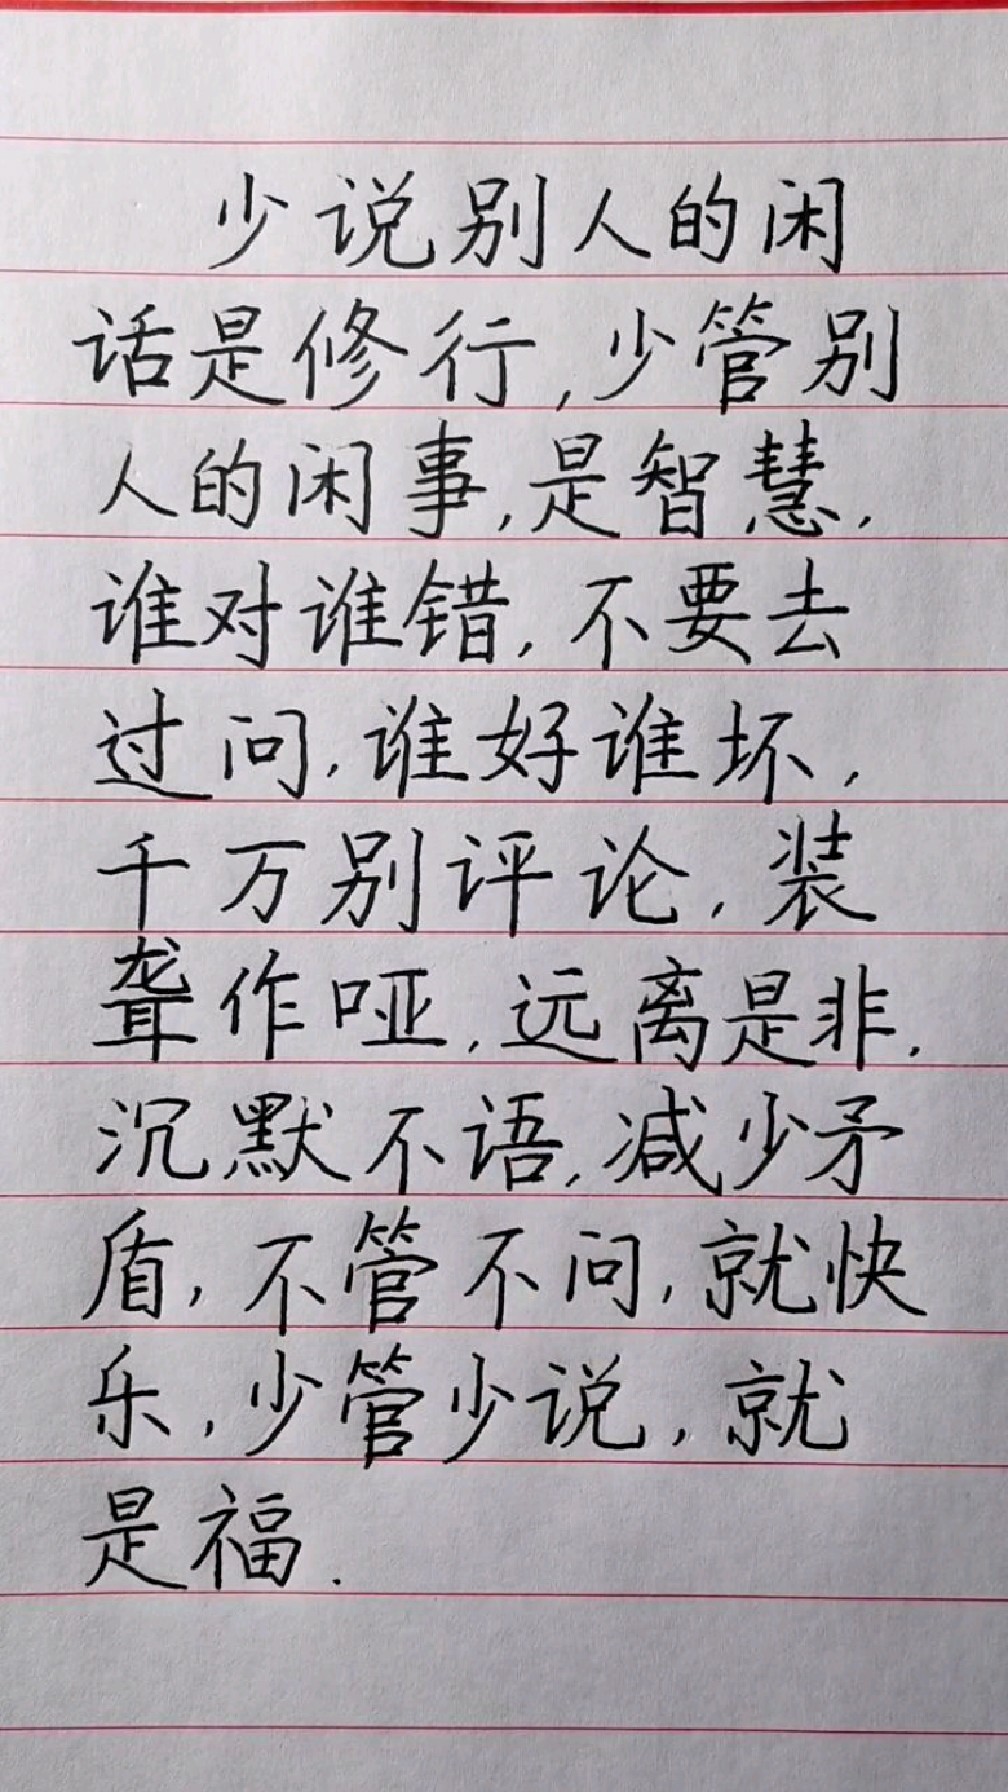 少说别人的闲
话是修行,少管别
人的闲事,是智慧,
谁对谁错,不要去
过问,谁好谁坏,
千万别评论,装
聋作哑,远离是非,
沉默不语,减少矛
盾,不管不问,就快
乐,少管少说,就
是福.